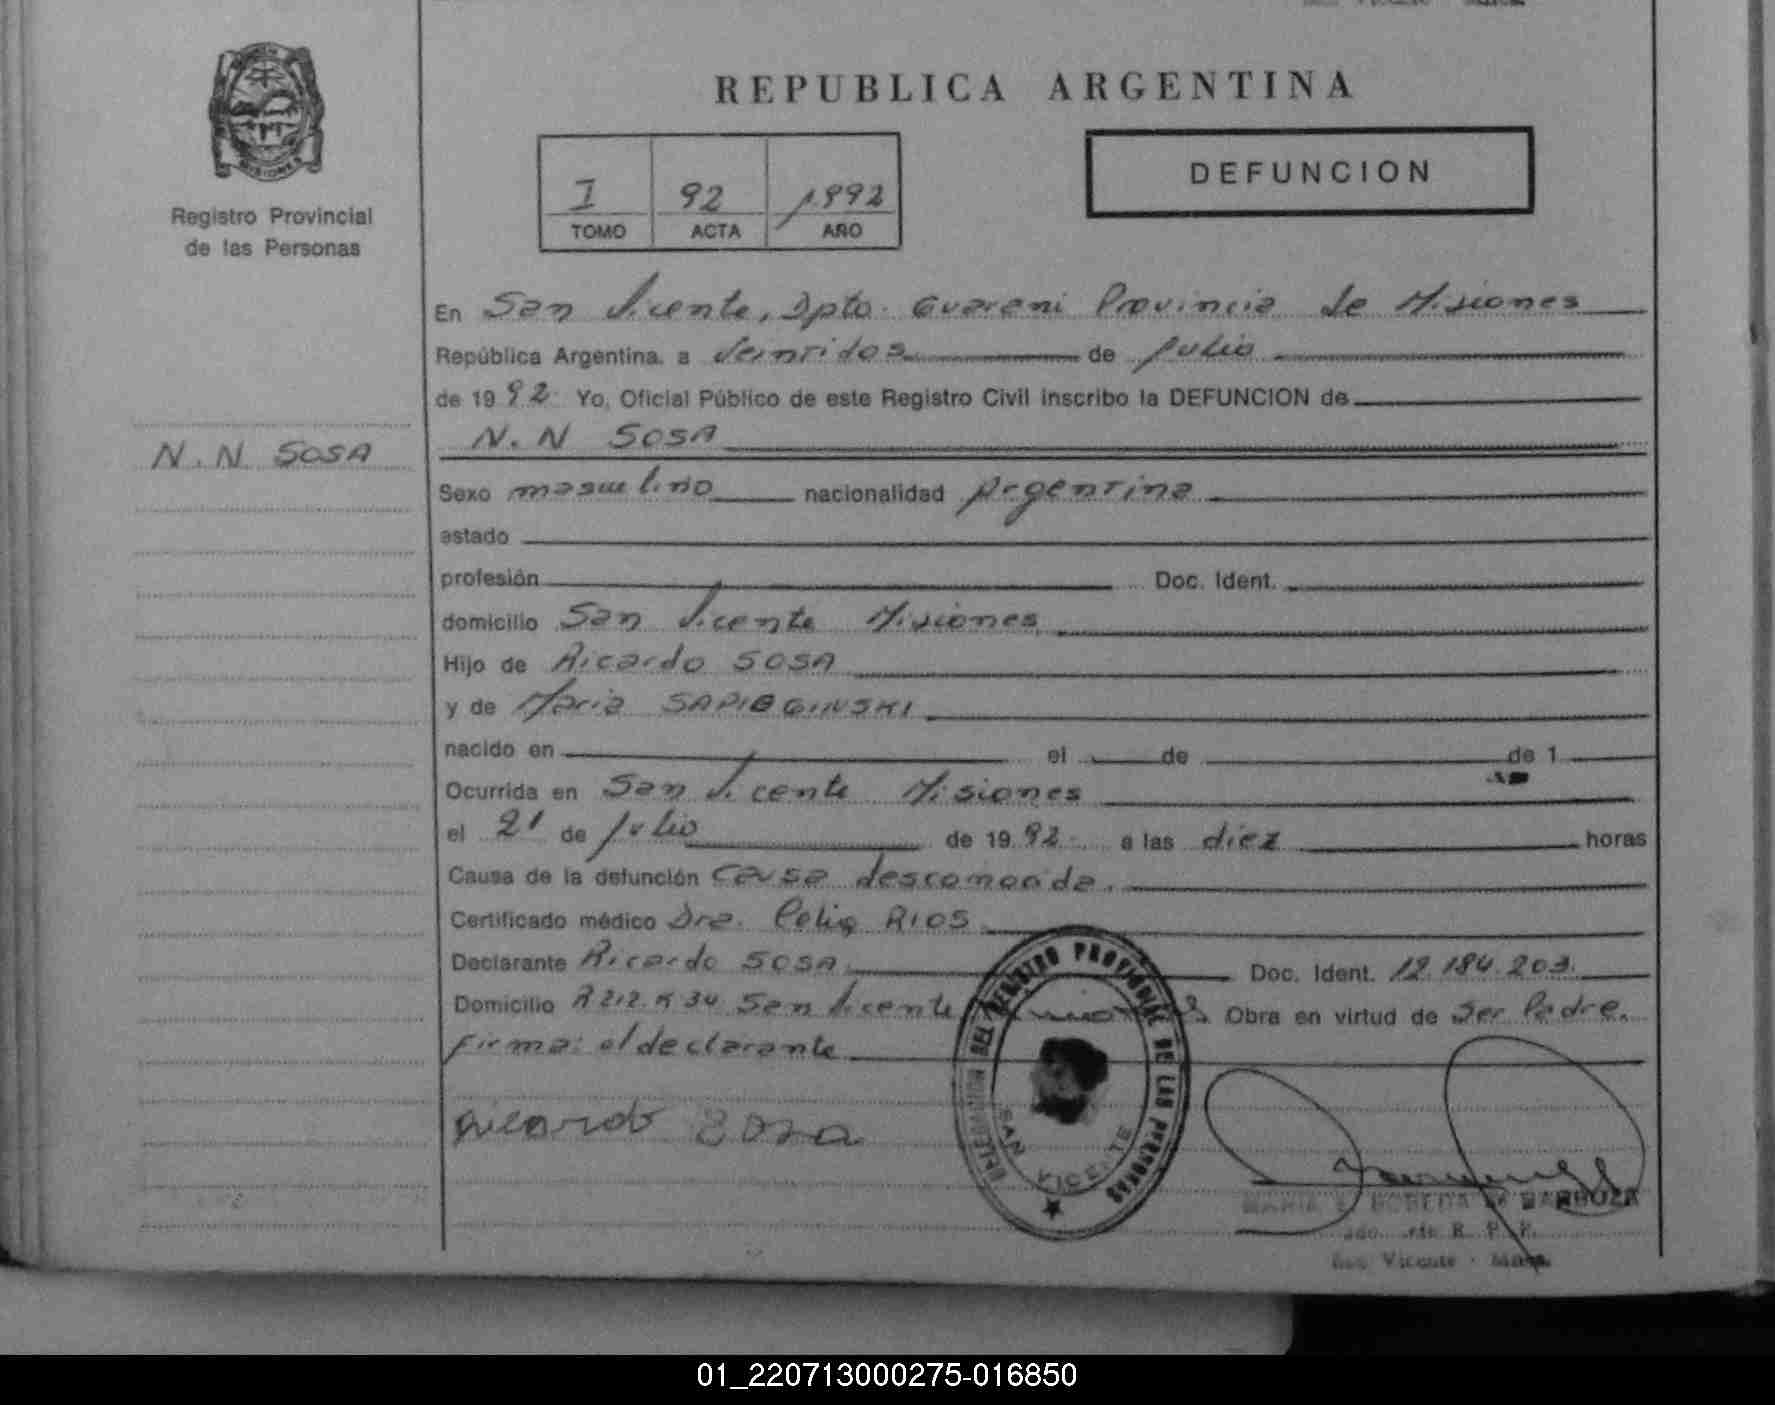 MISIONES
Registro Provincial
de las Personas
N.N. SOSA
REPUBLICA ARGENTINA
I 92 1992
TOMO ACTA AÑO
DEFUNCION
En San Vicente, Dpto. Guarani Provincia de Misiones
República Argentina, a Veintidos de Julio
de 1992 Yo, Oficial Público de este Registro Civil inscribo la DEFUNCION de
N.N SOSA
Sexo masculino nacionalidad Argentina
estado
profesión Doc. Ident.
domicilio San Vicente Misiones
Hijo de Ricardo SOSA
y de Maria
nacido en el de de 1
Ocurrida en San Vicente Misiones
el 21 de Julio de 1992 a las diez horas
Causa de la defunción Causa
Certificado médico Dra. Celia RIOS
Declarante Ricardo SOSA Doc. Ident. 12.184.203.
Domicilio R 212 K 34 San Vicente Obra en virtud de Ser Padre.
Firma: el declarante
Ricardo Sosa
DELEGACION DEL REGISTRO PROVINCIAL DE LAS PERSONAS
SAN VICENTE
MARIA E. DE BARBOZA
R. P. P.
San Vicente - Mnes.
01_220713000275-016850